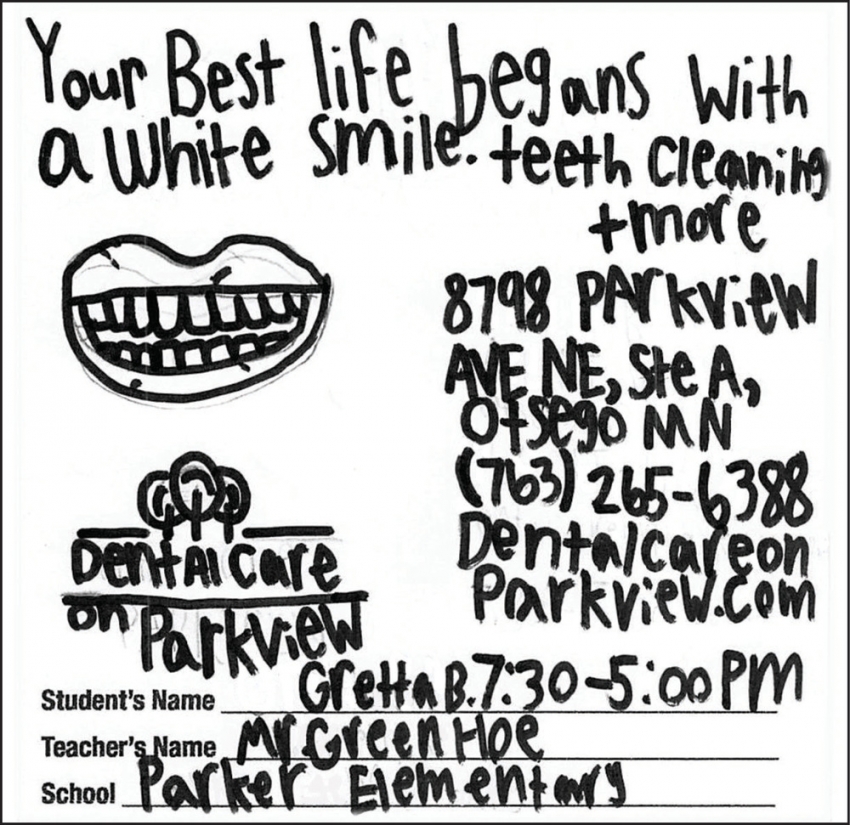 Your Best life begans with
a White smile. teeth cleaning
+more
8798 PArkview
AVE NE, Ste A,
Otsego MN
(763) 265-6388
Dentalcareon
Parkview.com
DentAl Care
on Parkview
Student's Name Gretta B. 7:30-5:00 PM
Teacher's Name Mr. Green Hoe
School Parker Elementary